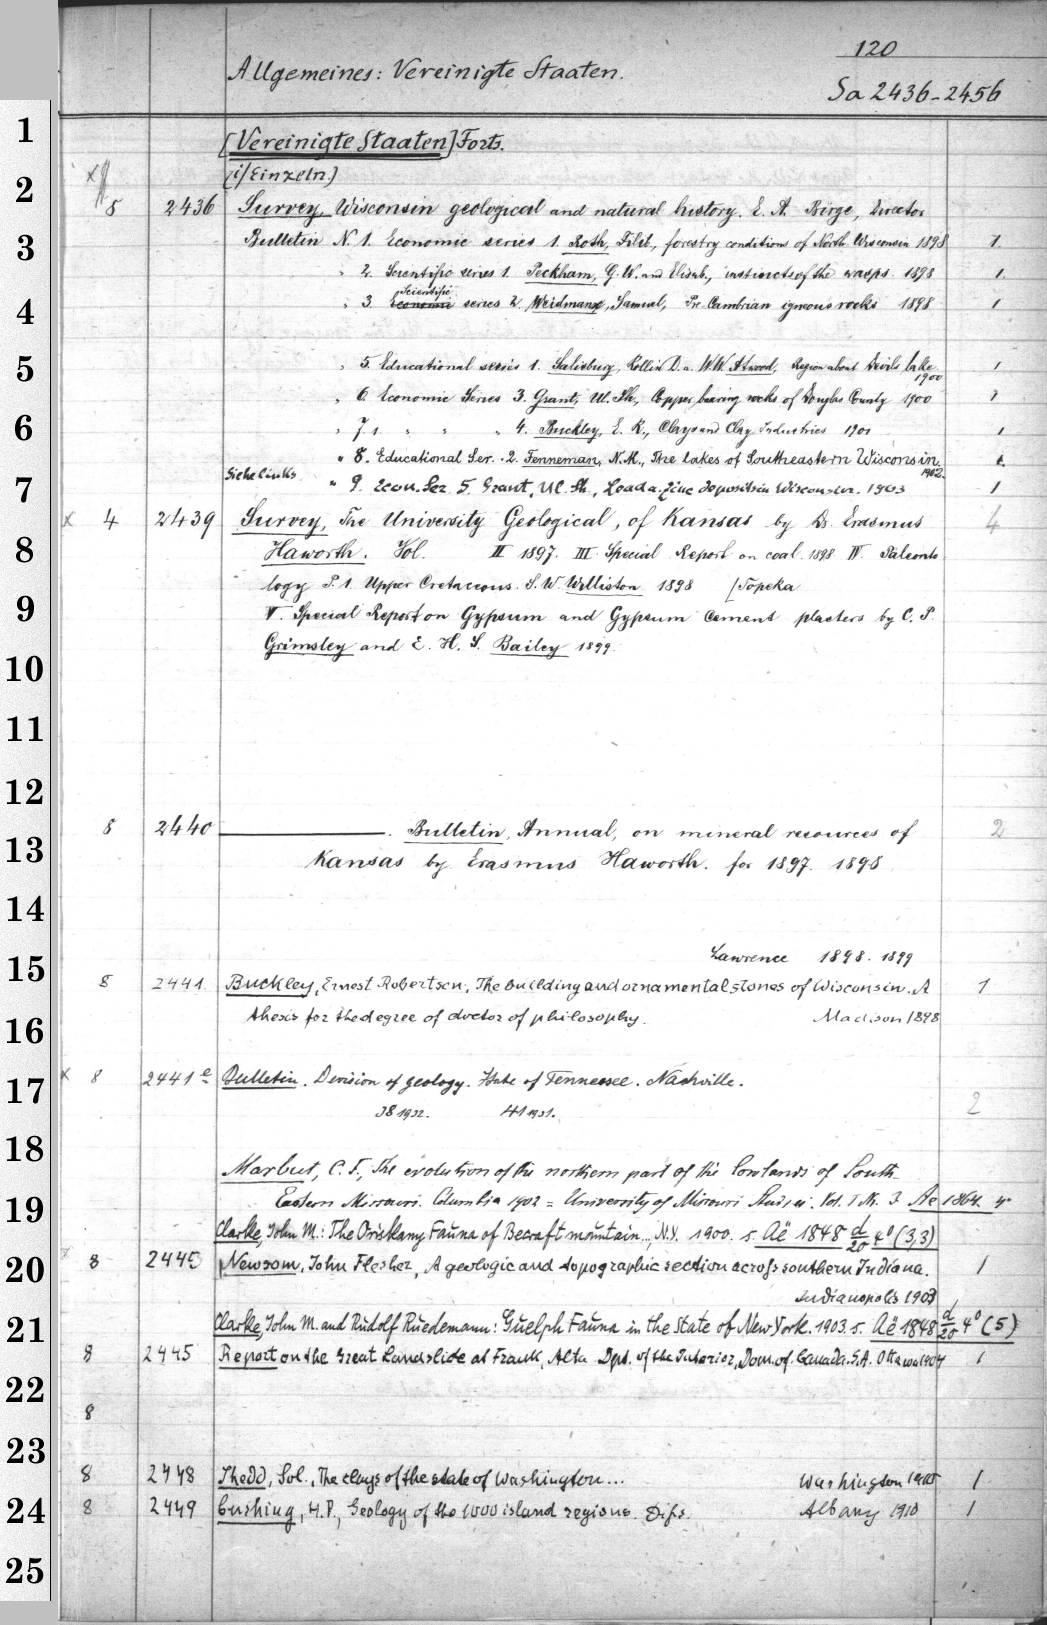 120
Allgemeines: Vereinigte Staaten.
Sa 2436-2456
1
[Vereinigte Staaten] Forts.
(i/Einzeln.)
2
8 2436 Survey, Wisconsin geological and natural history. E. A. Birge, Director
3
Bulletin N. 1. Economic series 1. Roth, Filib., forestry conditions of North Wisconsin 1898 1.
" 2. Scientific series 1. Peckham, G. W. and Elisab., instincts of the wasps 1898 1.
Scientific
4
" 3 Economic series 2. Weidman, Samuel, Pre-Cambrian igneous rocks 1898 1
5
" 5. Educational series 1. Salisbury, Rollin D. a. W. W. Atwood, Region about Devils lake 1
1900
" 6 Economic Series 3. Grant, Ul. Sh., Copper bearing rocks of Douglas County 1900 1
6
" 7 " " " " 4. Buckley, E. R., Clays and Clay Industries 1901 1
" 8. Educational Ser. 2. Fenneman, N. M., The lakes of Southeastern Wisconsin. 1.
1902.
Siehe links
7
" 9. Econ. Ser. 5. Grant, Ul. Sh., Lead a. Zinc deposits in Wisconsin. 1903 1
x 4 2439 Survey, The University Geological, of Kansas by Dr. Erasmus 4
8
Haworth. Vol. II 1897. III Special Report on coal 1898 IV. Paleonto
logy P. 1. Upper Cretaceous. S. W. Williston 1898 [Topeka
9
V. Special Report on Gypsum and Gypsum cement plasters by C. P.
Grimsley and E. H. S. Bailey 1899.
10
11
12
8 2440 ———. Bulletin, Annual, on mineral resources of 2
13
Kansas by Erasmus Haworth. for 1897. 1898
14
Lawrence 1898. 1899
15
8 2441 Buckley, Ernest Robertson, The building and ornamental stones of Wisconsin. A 1
16
thesis for the degree of doctor of philosophy. Madison 1898
17
x 8 2441 e Bulletin. Division of geology. State of Tennessee. Nashville.
38 1932. 41 1931. 2
18
Marbut, C. F., The evolution of the northern part of the lowlands of South-
19
Eastern Missouri. Columbia 1902 = University of Missouri Studies. Vol. I N. 3 Ae 1864 4°
Clarke, John M.: The Oriskany Fauna of Becraft mountain..., N.Y. 1900. s. Aë 1848 d/20 4° (3,3)
20
8 2445 Newsom, John Flesher, A geologic and topographic section across southern Indiana. 1
Indianopolis 1903
21
Clarke, John M. and Rudolf Ruedemann: Guelph Fauna in the State of New York. 1903 s. Aë 1848 d/20 4° (5)
8 2445 Report on the Great Landslide at Frank, Alta Dpt. of the Interior, Dom. of Canada. S.A. Ottawa 1904 1
22
8
23
8 2448 Shedd, Sol., The clays of the state of Washington... Washington 1910 1
24
8 2449 Cushing, H. P., Geology of the 1000 island regions. Diss. Albany 1910 1
25